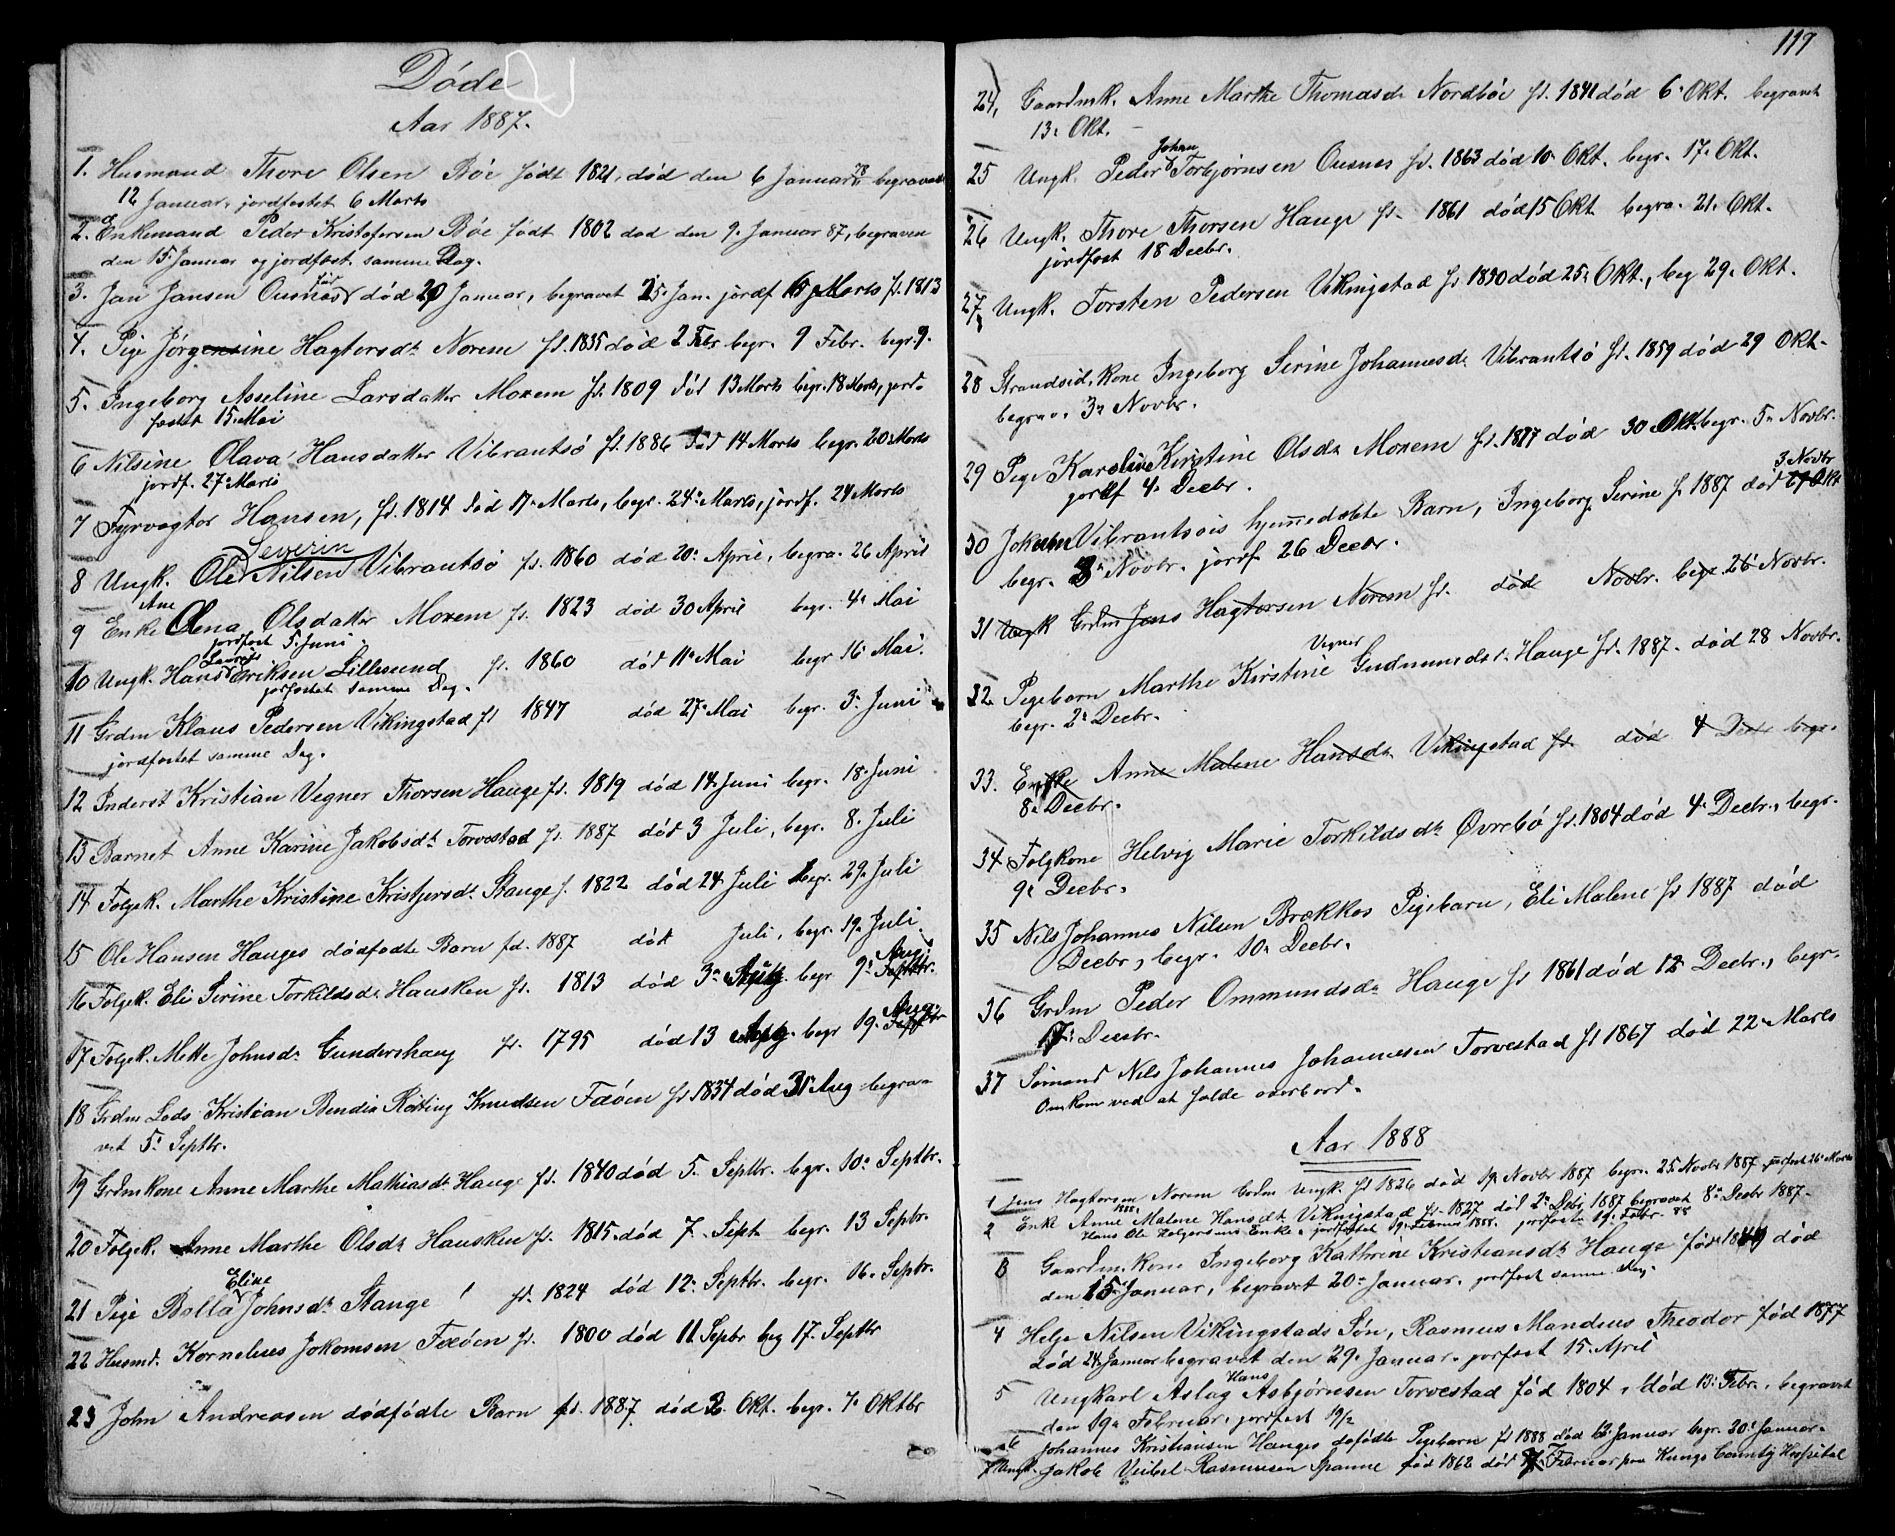 Døde
Aar 1887.
1. Husmand Thore Olsen Bøe født 1821, død den 6 Januar 78 begravet
12 Januar, jordfæstet 6 Marts
2. Enkemand Peder Kristofersen Bøe født 1802 død den 9. Januar 87, begraven
den 15. Januar og jordfæst. samme Dag.
3. Jan Jansen Ousnes død 20 Januar, begravet 25. Jan. jordf. Marts fd. 1813
4. Pige Jørgensine Hagtorsdt. Norem fd. 1835 død 2 Febr begr. 9 Febr. begr. 9.
5. Ingeborg Asseline Larsdatter Moxem fd. 1809 død 13 Marts begr. 18 Marts, jord-
fæstet 15. Mai
6 Nilsine Olava Hansdatter Vibrantsø fd. 1886 død 14 Marts begr. 20 Marts
jordf. 27 Marts
7 Fyrvogter Hansen, fd. 1814 død 17. Marts, begr. 24. Marts, jordf. 24 Marts
Severin
8 Ungk. Ole Nilsen Vibrantsø fd. 1860 død 20. April, begra. 26 April
Ane
9 Enke Olena Olsdatter Moxem fd. 1823 død 30 April begr. 4. Mai
jordfæst 5. Juni
Laurits
10 Ungk. Hans Eriksen Lillesund fd. 1860 død 11. Mai begr 16. Mai.
jorfæstet samme Dag.
11 Grdm Klaus Pedersen Vikingstad fd 1847 død 27. Mai begr. 3. Juni
jordfæstet samme Dag.
12 Inderst Kristian Vegner Thorsen Hauge fd. 1819 død 14. Juni begr. 18. Juni
13 Barnet Anne Karine Jakobsdt. Torvestad fd. 1887 død 3 Juli, begr. 8. Juli
14 Folgek. Marthe Kristine Kristfersdt. Stange f. 1822 død 24. Juli begr. 29. Juli
15 Ole Hansen Hauges dødfødte Barn fd. 1887 død Juli, begr. 19. Juli.
Aug.
16 Folgek. Eli Serine Torkildsdt. Hausken fd. 1813 død 3. Aug. begr 9. Septbr.
Aug.
17 Folgek. Mette Johnsdt. Gundershaug fd. 1795 død 13 Aug. begr 19. Septbr
18 Grdm Lods Kristian Bendix Røting Knudsen Fæøen fd. 1834 død 31. Aug begra-
vet 5. Septbr.
19 Grdmkone Anne Marthe Mathiasdt. Hauge fd. 1840 død 5. Septbr. begr. 10. Septbr.
20 Folgek. Anne Marthe Olsdt. Hausken fd. 1815. død 7. Sept. begr. 13 Septbr.
Eline
21 Pige Bolla Johnsdt. Stange fd. 1824 død 12. Septbr. begr. 16. Septbr.
22 Husmd. Kornelius Jokomsen Fæøen fd. 1800 død 11. Sepbr beg 17. Septbr
23 John Andreasen dødfødte Barn fd. 1887. død 2. Okt. begr. 7. Oktbr
117
24, Gaardmk. Anne Marthe Thomasdt. Nordbøe fd. 1841 død 6. Okt. begravet
13. Okt.
Johan
25 Ungk. Peder Torbjørnsen Ousnes fd. 1863 død 10. Okt. begr. 17. Okt.
26 Ungk. Thore Thorsen Hauge fd. 1861 død 15 Okt. begra. 21. Okt.
jordfæst 18 Decbr.
27 Ungk. Torsten Pedersen Vikingstad fd 1890 død 25. Okt., beg 29. Okt.
28 Strandsid. kone Ingeborg Serine Johannesdt. Vibrantsø fd. 1859 død 29 Okt.
begrav. 3. Novbr.
29 Pige Karoline Kirstine Olsdt. Moxem fd. 1877 død 30 Okt. begr. 5. Novbr.
jordf 4. Decbr.
3 Novbr
30 Jokum Vibrantsøis hjemmedøbte Barn, Ingeborg Serine f. 1887 død Okt
begr. 8. Novbr. jordf 26 Decbr.
31 Ungk Grdm Jens Hagtorsen Norem fd. død Novbr. begr. 26. Novbr.
Vegner
32. Pigebarn Marthe Kirstine Gudmundsdt. Hauge fd. 1887. død 28 Novbr.
begr. 2. Decbr.
33. Enke Anne Malene Hansdt. Vikingstad fd. død 4 Decbr begr.
8. Decbr.
34 Folgkone Helvig Marie Torkildsdt. Øvrebø fd. 1804 død 4. Decbr., begr.
9. Decbr.
35 Nils Johannes Nilsen Brækkes Pigebarn, Eli Malene fd 1887 død
Decbr., begr. 10. Decbr.
36 Grdm Peder Ommundsdt. Hauge fd 1861 død 12. Decbr., begr.
17. Decbr.
37 Sømand Nils Johannes Johannesen Torvestad fd 1867 død 22. Marts
Omkom ved at falde overbord.
Aar 1888
1 Jens Hagtorsen Norem Grdm Ungk. fd 1826 død 19. Novbr 1887 begr. 25 Novbr 1887 jorfæst 26. Marts
1888.
2 Enke Anne Malene Hansdt. Vikingstad fd. 1827 død 2. Dcbr 1887 begravet 8. Decbr 1887.
Hans Ole Holgersens Enke. jordfæstet 19. Februar 1888. jordfæstet 19. Febr. 88
3 Gaardm. kone Ingeborg Kathrine Kristiansdt. Hauge født 1849 død
den 15. Januar, begravet 20. Januar. jordfæst samme Dag.
4 Helge Nilsen Vikingstads Søn, Rasmus Mandius Theodor fød 1877
død 24. Januar begravet den 29. Januar. jorfæst 15. April
Hans
5 Ungkarl Aslag Asbjørnsen Torvestad fød 1804, død 13. Febr., begravet
den 19. Februar. jordfæst 19/2
6 Johannes Kristiansen Hauges døfødte Pigebarn fd 1888 død 12. Januar begr. 20. Januar.
7 Ungk. Jakob Veibel Rasmussen Spanne fød 1862 død Februar paa Kungs County Hospital